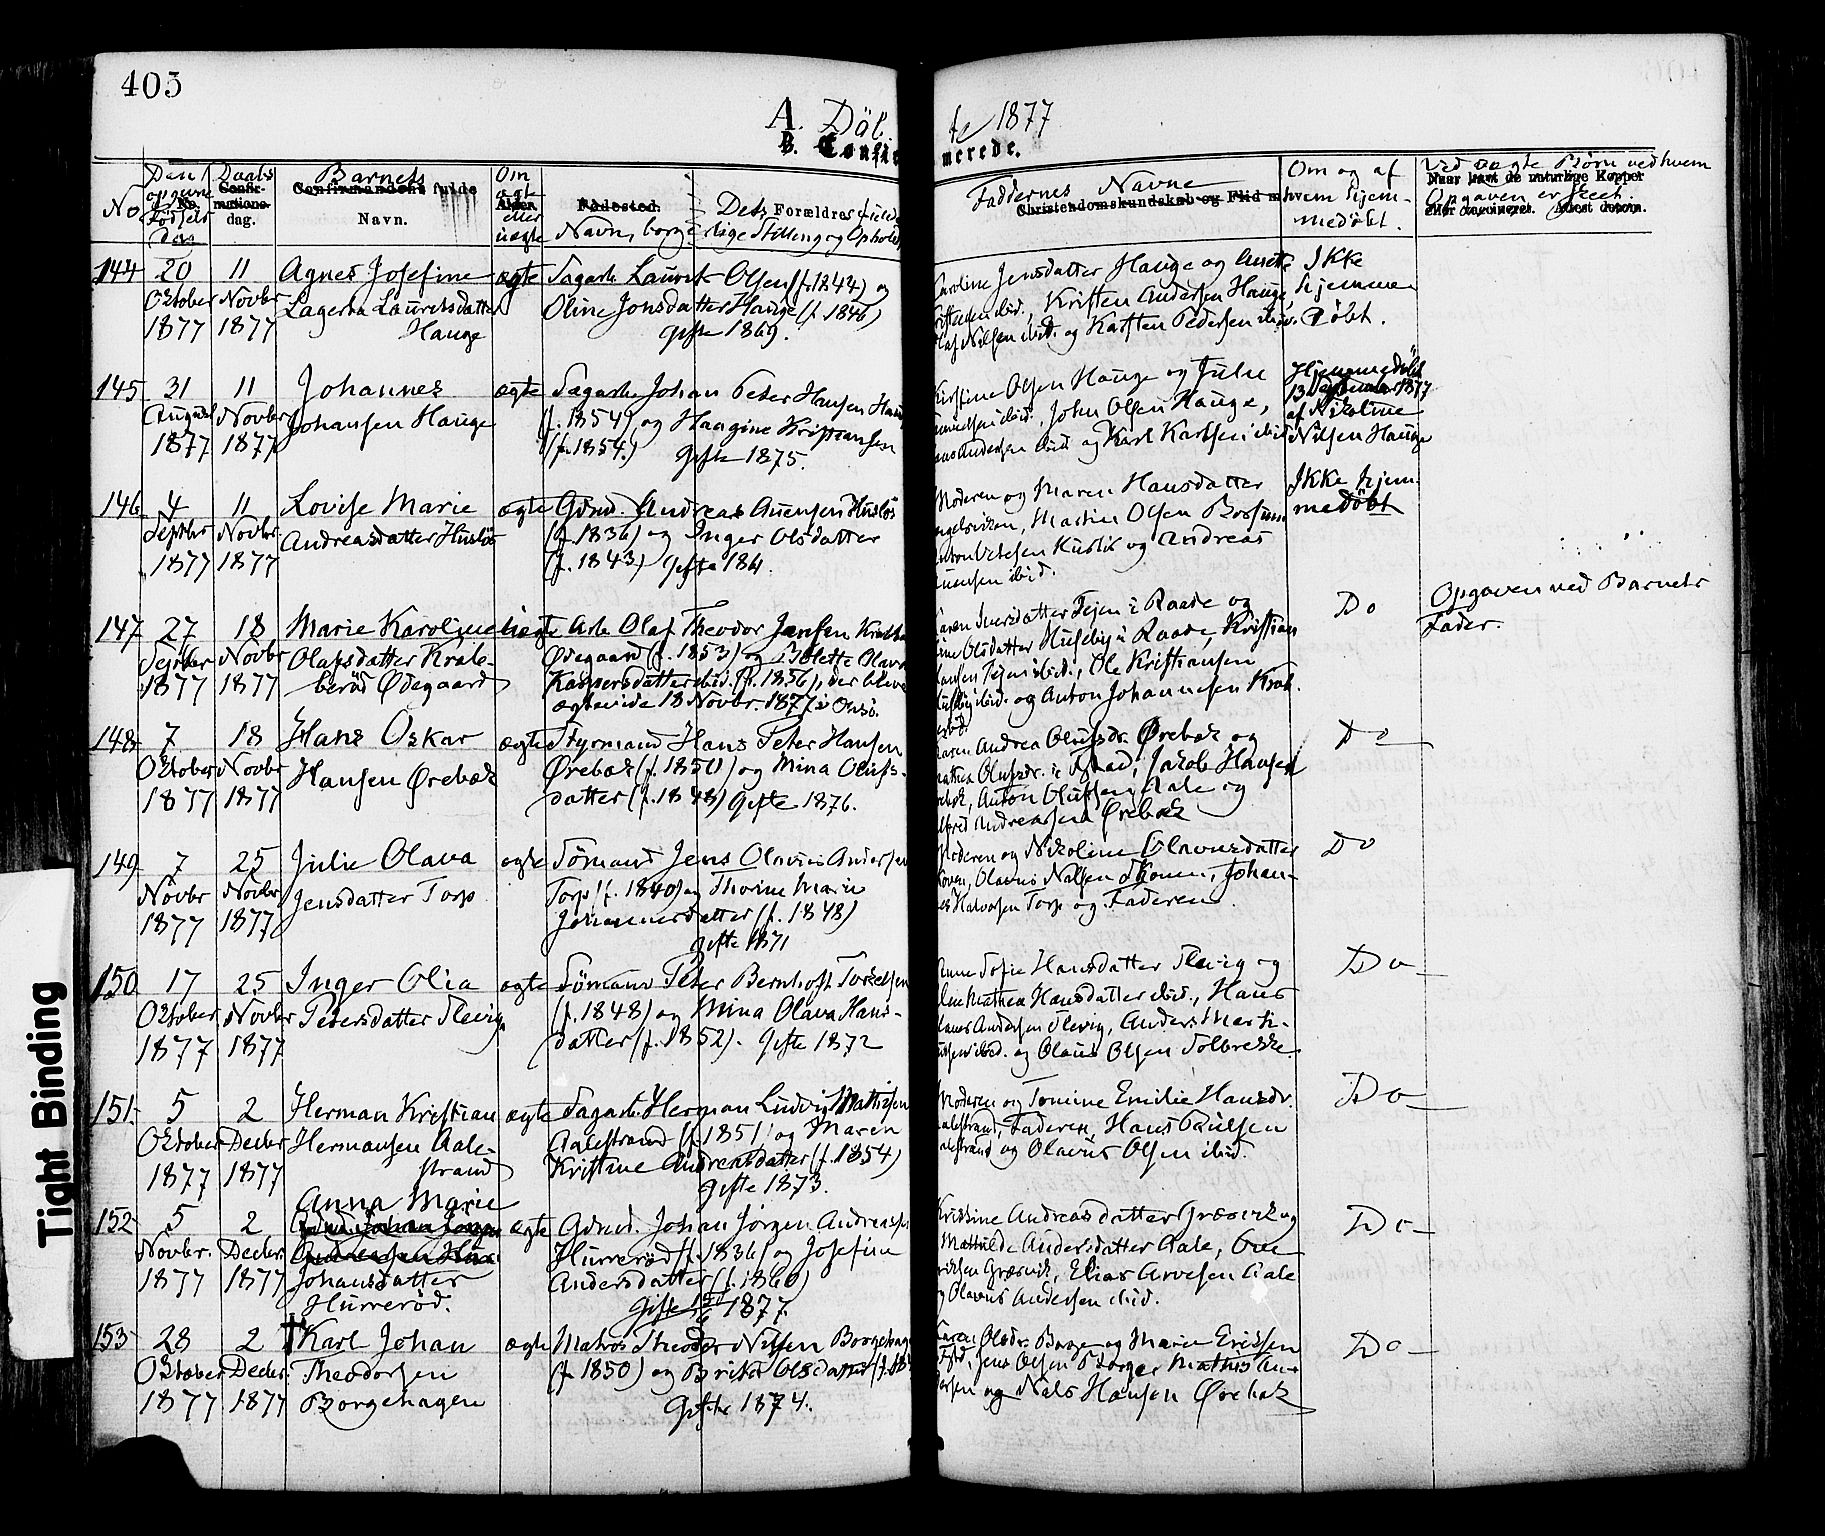 405
A. Döb te 1877
B. Confir merede.
No
Den opgivne Fødselsdag
Daabs dag.
Barnets fulde Navn.
Om ægte eller uægte
Dets Forældres fulde Navn, borgerlige Stilling og Ophold
Faddernes Navne
Om og af hvem hjemmedöbt.
Ved uægte Börn ved hvem Opgaven er skeet
144 20 11 Agnes Josefine ægte Sagarb. Laurits Olsen (f. 1844) og
Oktober Novbr Lagerta Lauritsdatter Oline Jonsdatter Hauge (f. 1846)
1877 1877 Hauge gifte 1869.
Caroline Jensdatter Hauge og Anette
ibid., Kristen Andersen Hauge,
Olaf Nilsen ibid. og Karsten Pedersen ibid.
Ikke
hjemme
döbt.
145 31 11 Johannes ægte Sagarb. Johan Peter Hansen
August Novbr Johansen Hauge (f. 1854) og Haagine Kristiansen
1877 1877 (f. 1854.) gifte 1875.
Kirstine Olsen Hauge og Julie
ibid., John Olsen Hauge,
Andersen ibid. og Karl Karlsen ibid.
Hjemmedöbt
13 September 1877
af Nikoline
Nilsen Hauge
146 4 11 Lovise Marie ægte Gdmd. Andreas Huslö
Septbr Novbr Andreasdatter Huslö (f. 1836) og Inger Olsdatter
1877 1877 (f. 1843) gifte
Moderen og Maren Hansdatter
Engelsviken, Martin Olsen
Huslö og Andreas
ibid.
Ikke hjem-
medöbt
147 27 18 Marie Karoline uægte Arb. Olaf Theodor Jensen
Septbr Novbr Olafsdatter Krake- Ødegaard (f. 1853) og
1877 1877 beröd Ødegaard Kaspersdatter ibid. (f. 1856), der bleve
ægteviede 18 Novbr. 1877 i Onsö.
Karen Iversdatter Tejen i Raade og
Olsdatter Huseby i Raade, Kristian
Hansen Tejen ibid., Ole Kristiansen
Huseby ibid. og Anton Johannesen Krak-
beröd
Do
Opgaven ved Barnets
Fader.
148 7 18 Hans Oskar ægte Styrmand Hans Peter Hansen
Oktober Novbr Hansen Ørebæk Ørebæk (f. 1850) og Mina Olufs-
1877 1877 datter (f. 1848) gifte 1876.
Karen Andrea Olufsdr. Ørebæk og
Mathea Olufsdr. i , Jakob Hansen
Ørebæk, Anton Olufsen Aale og
Alfred Andreassen Ørebæk
Do
149 7 25 Julie Olava ægte Sömand Jens Olavus Andersen
Novbr Novbr Jensdatter Torp Torp (f. 1840) og Thorine Marie
1877 1877 Johannesdatter (f. 1848)
gifte 1871
Moderen og Nikoline Olavusdatter
Olavus Nilsen , Johan-
nes Halvorsen Torp og Faderen.
Do
150 17 25 Inger Olia ægte Sömand Peter Bernhoft Torkelsen
Oktober Novbr Petersdatter Slevig (f. 1848) og Mina Olava Hans-
1877 1877 datter (f. 1852). Gifte 1872
Anne Sofie Hansdatter Slevig og
Mathea Hansdatter ibid., Hans
Andersen Slevig, Anders Marti-
ibid. og Olaus Olsen Solbrekke.
Do
151 5 2 Herman Kristian ægte Sagarb. Herman Ludvig Mathisen
Oktober Decbr Hermansen Aale- Aalestrand (f. 1851) og Maren
1877 1877 strand Kristine Andreasdatter (f. 1854)
gifte 1873.
Moderen og Tomine Emilie Hansdr.
Aalestrand, Faderen, Hans Paulsen
Aalestrand og Olavus Olsen ibid.
Do
152 5 2 Anna Marie ægte Gdmd. Johan Jörgen Andreassen
Novbr. Decbr. Johansdatter Hurreröd (f. 1836) og Josefine
1877 1877 Hurreröd. Andersdatter (f. 1860)
gifte 1877.
Kristine Andreasdatter Græsvik og
Mathilde Andersdatter Aale, Ove
Græsvik, Elias Arvesen Aale
og Olavus Andersen ibid.
Do
153 28 2 † Karl Johan ægte Matros Theodor Nilsen Borgehagen
Oktober Decbr. Theodorsen (f. 1850) og Brita Olsdatter
1877 1877 Borgehagen Gifte 1874.
Karen Olsdr. Borge og Marie Eriksen
Jens Olsen Borge, Mathis An-
dersen og Nils Hansen Ørebæk
Do
Tight Binding